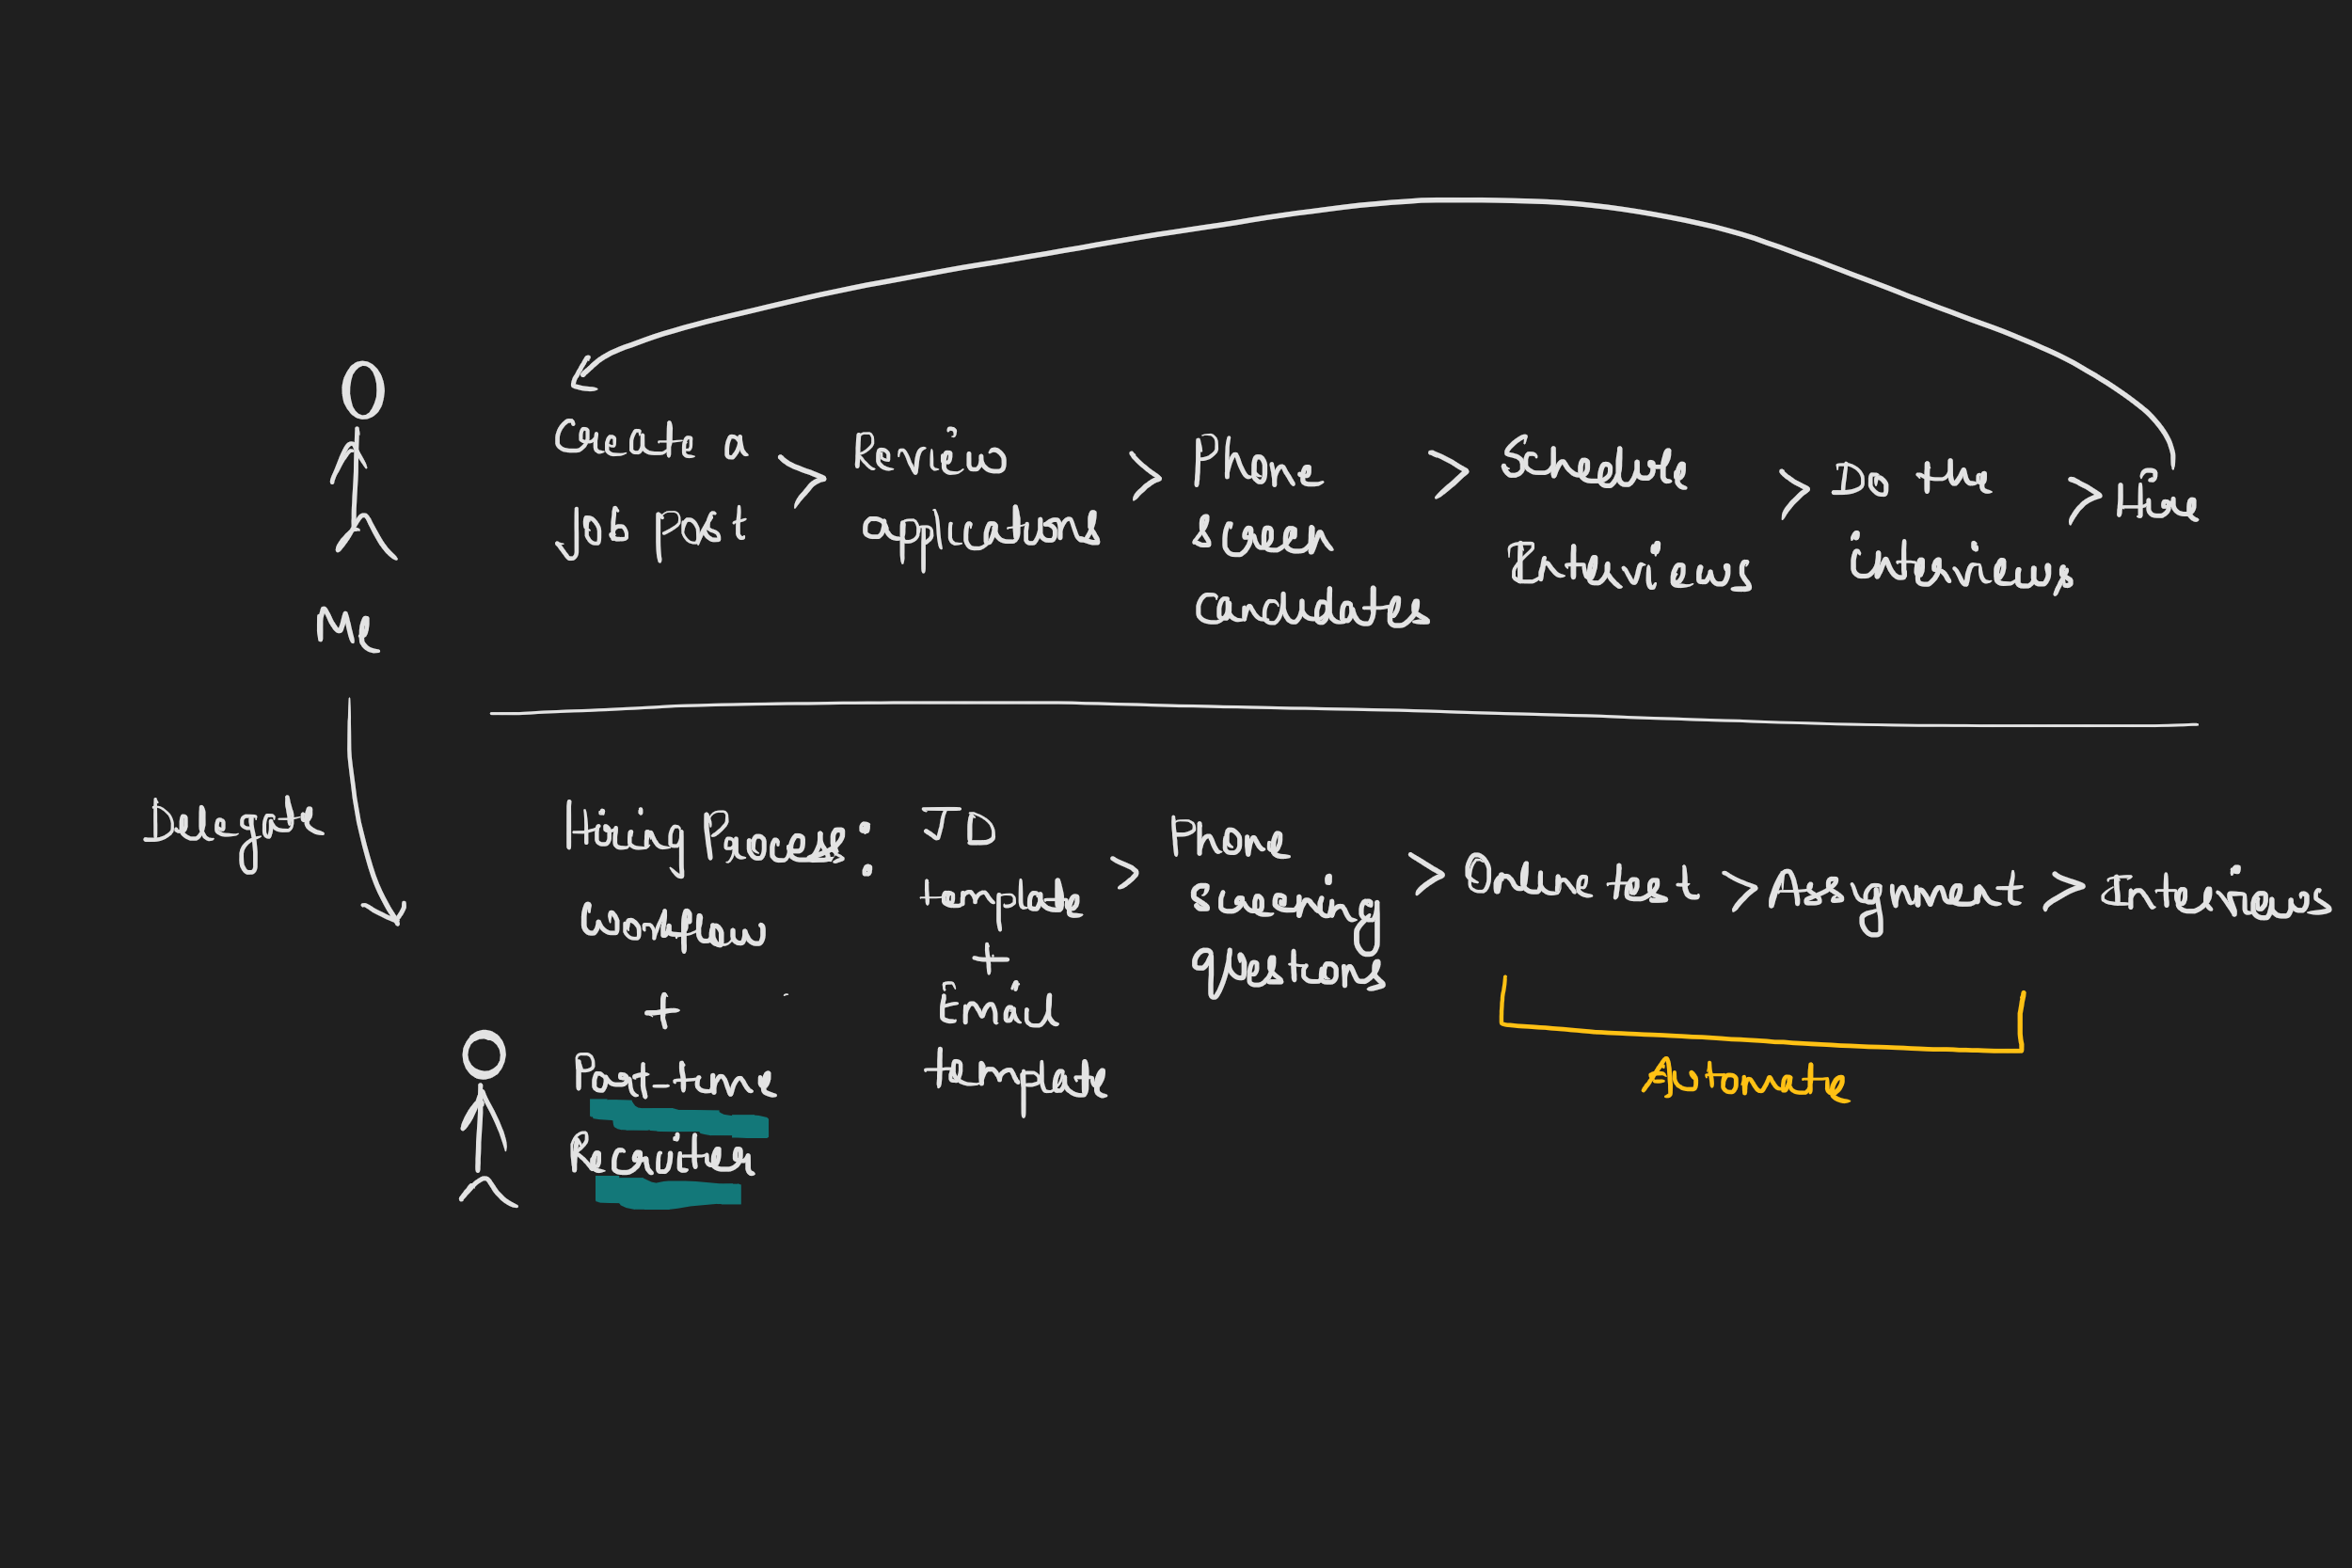 Create a
Job Post
> Review
applications
> Phone
screen
candidates
> Schedule
Interviews
> Do the
interviews
> Hire
Me
Delegate
Hiring Process:
workflow
+
Part-time
Recruiter
JD
template
+
Email
template
> Phone
screening
questions
> Online test > Assignment > Interviews
Automate